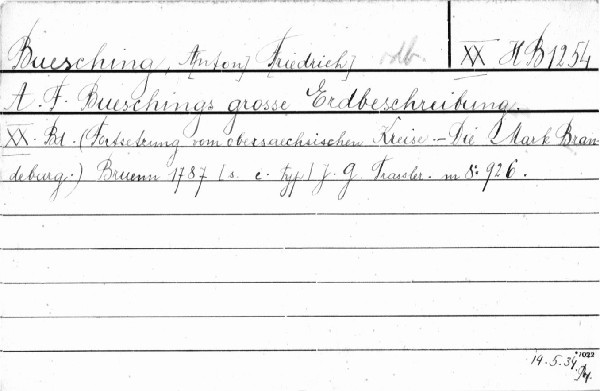 Buesching, A[nton] Friedrich] odb. XX H B 1254
A. F. Bueschings grosse Erdbeschreibung.
XX. Bd. (Fortsetzung vom obersaechsischen Kreise - Die Mark Bran-
deburg.) Bruenn 1787 [s. c. typ] J. G. Trassler. m 8: 926.
1022
19. 5. 39.